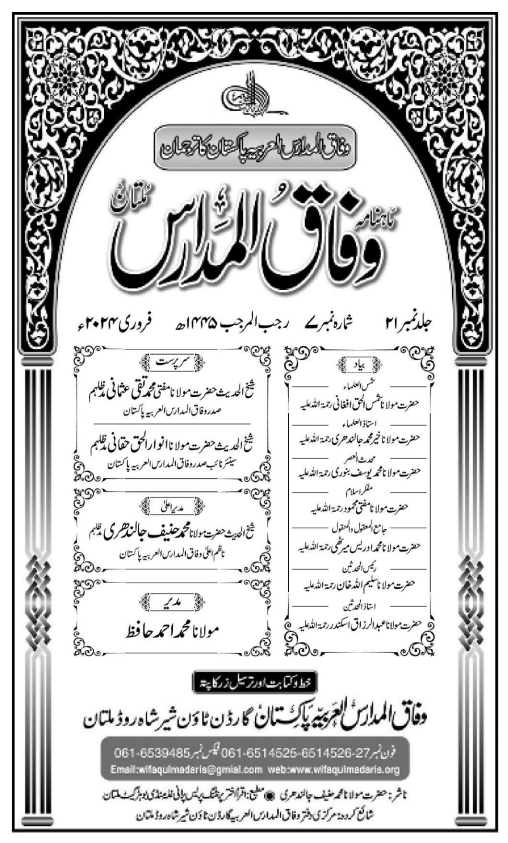 وفاق المدارس العربیہ پاکستان کا ترجمان
ماہنامہ
وفاق المدارس
ملتان
جلد نمبر ۲۱ شمارہ نمبر ۷ رجب المرجب ۱۴۴۵ھ فروری ۲۰۲۴ء
بیاد
شمس العلماء
حضرت مولانا شمس الحق افغانی رحمۃ اللہ علیہ
استاذ العلماء
حضرت مولانا خیر محمد جالندھری رحمۃ اللہ علیہ
محدث العصر
حضرت مولانا محمد یوسف بنوری رحمۃ اللہ علیہ
مفکر اسلام
حضرت مولانا مفتی محمود رحمۃ اللہ علیہ
جامع المعقول والمنقول
حضرت مولانا محمد ادریس میرٹھی رحمۃ اللہ علیہ
رئیس المحدثین
حضرت مولانا سلیم اللہ خان رحمۃ اللہ علیہ
استاذ المحدثین
حضرت مولانا عبدالرزاق اسکندر رحمۃ اللہ علیہ
سرپرست
شیخ الحدیث حضرت مولانا مفتی محمد تقی عثمانی مدظلہم
صدر وفاق المدارس العربیہ پاکستان
شیخ الحدیث حضرت مولانا انوار الحق حقانی مدظلہم
سینئر نائب صدر وفاق المدارس العربیہ پاکستان
مدیر اعلیٰ
شیخ الحدیث حضرت مولانا محمد حنیف جالندھری مدظلہم
ناظم اعلیٰ وفاق المدارس العربیہ پاکستان
مدیر
مولانا محمد احمد حافظ
خط و کتابت اور ترسیل زر کا پتہ
وفاق المدارس العربیہ پاکستان گارڈن ٹاؤن شیر شاہ روڈ ملتان
فون نمبر 061-6514525-6514526-27 فیکس نمبر 061-6539485
Email:wifaqulmadaris@gmial.com web:www.wifaqulmadaris.org
ناشر: حضرت مولانا محمد حنیف جالندھری مطبع: اقرأ اختر پرنٹنگ پریس پرانی غلہ منڈی بوہڑ گیٹ ملتان
شائع کردہ: مرکزی دفتر وفاق المدارس العربیہ گارڈن ٹاؤن شیر شاہ روڈ ملتان